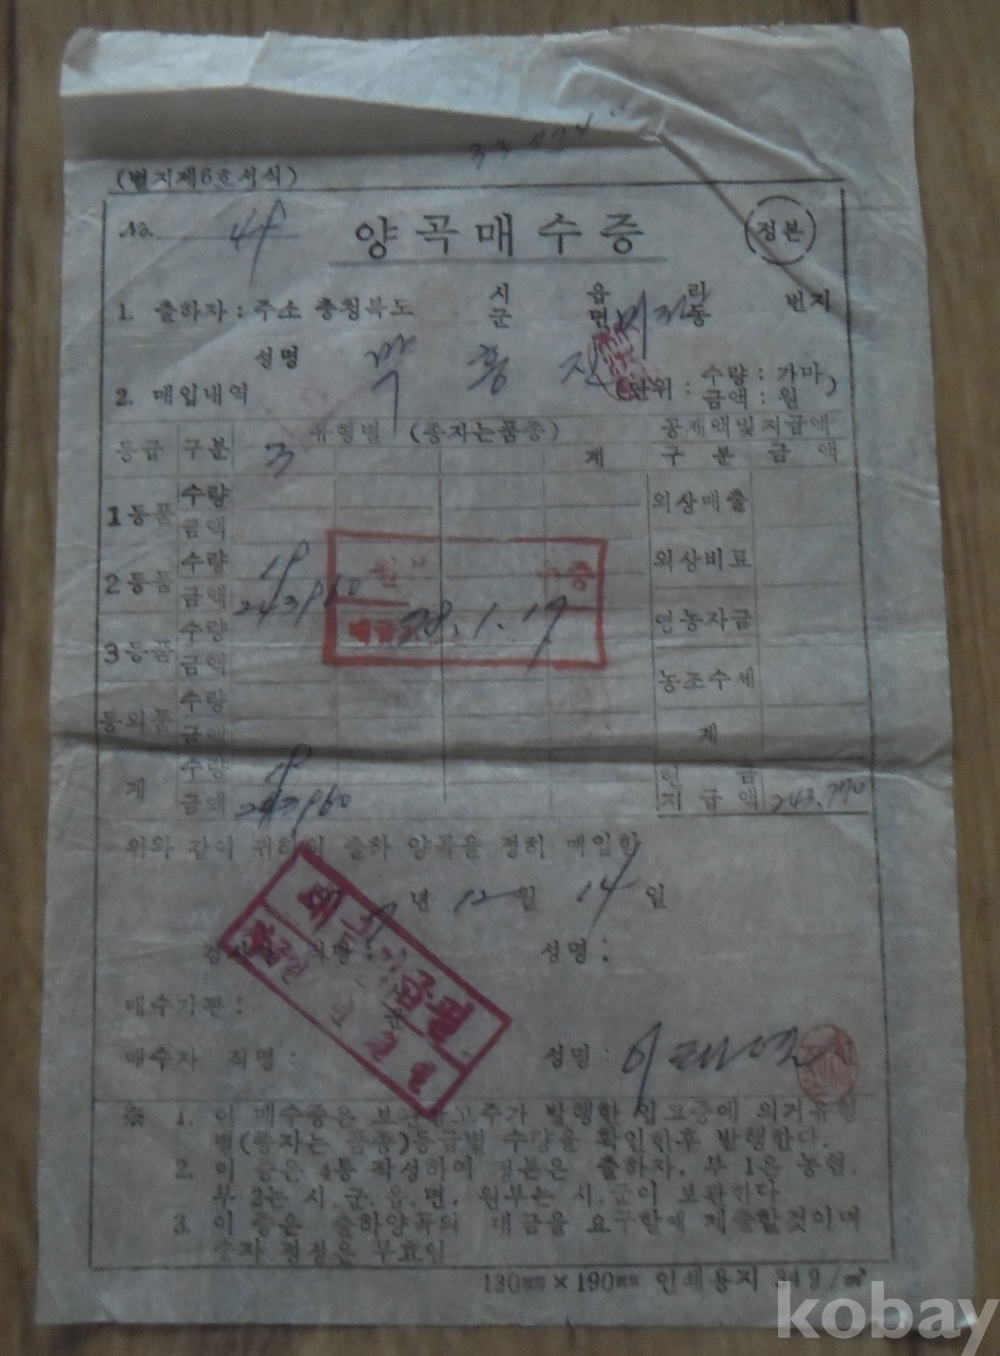 (별지제6호서식)
No.
양곡매수증
정본
1. 출하자 : 주소 충청북도 시 군 읍 면 리 동 번지
성명 박 흥
2. 매입내역 (단위 : 수량 : 가마, 금액 : 원)
등급 구분 유형별 (종자는품종) 계 공제액및지급액
3 구 분 금 액
1등품 수량 금액 외상매출
2등품 수량 금액 외상비료
영농자금
3등품 수량 금액
농조수세
등외품 수량 금액 계
계 수량 금액 현 금 지 급 액 243.770
78.1.17
위와 같이 귀하의 출하 양곡을 정히 매입함
년 12월 14일
성명 :
매수기관 :
매수자 직명 : 성명 :
※ 1. 이 매수증은 발행한 입고증에 의거유형
별(종자는 품종)등급별 수량을 확인한후 발행한다.
2. 이 증은 4통 작성하여 정본은 출하자, 부 1은 농협,
부 2는 시.군.읍.면, 원부는 시.군이 보관한다
3. 이 증은 출하양곡의 대금을 요구할때 제출할것이며
숫자 정정은 무효임
130㎜×190㎜ 인쇄용지 34g/㎡
kobay